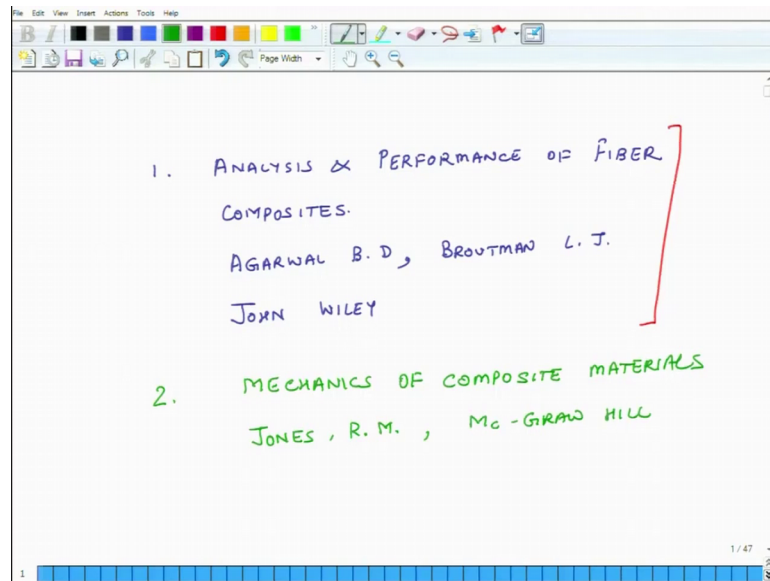 File Edit View Insert Actions Tools Help
B I
Page Width
1. ANALYSIS & PERFORMANCE OF FIBER
COMPOSITES.
AGARWAL B.D, BROUTMAN L.J.
JOHN WILEY
2. MECHANICS OF COMPOSITE MATERIALS
JONES, R.M., Mc-GRAW HILL
1 / 47
1